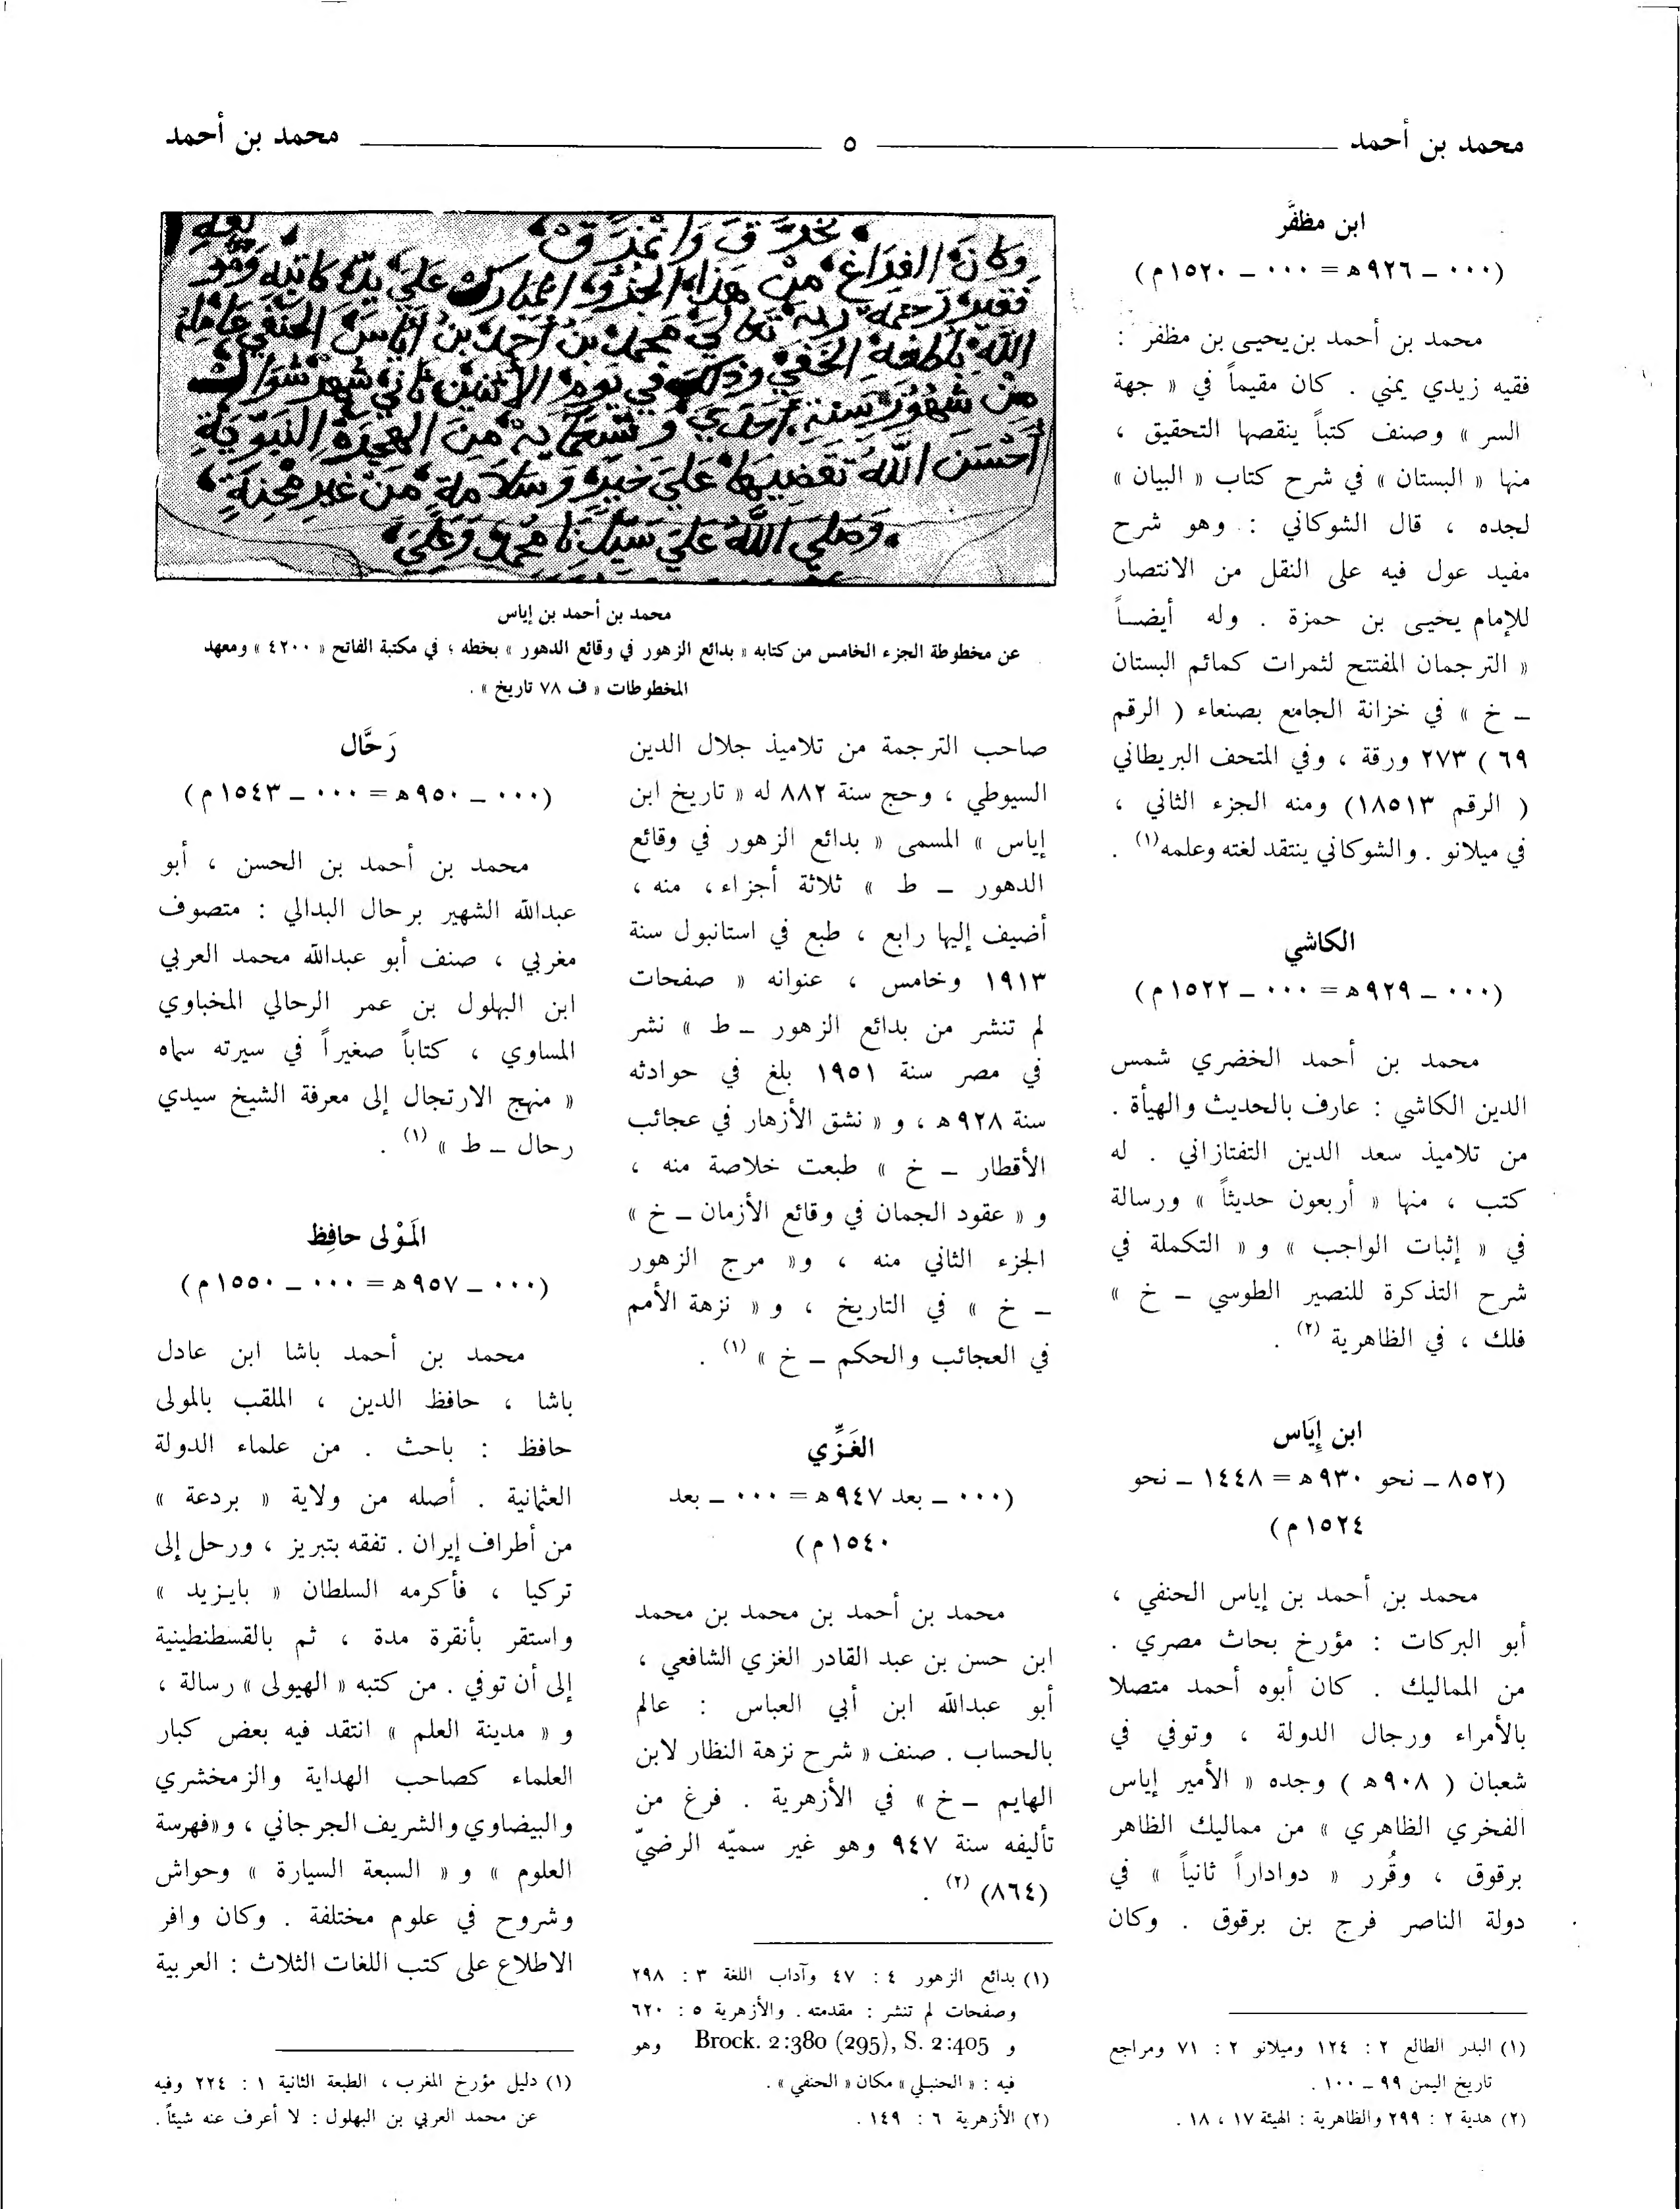 محمد بن أحمد
٥
محمد بن أحمد
ابن مظفَّر
(٠٠٠ ــ ٩٢٦ هـ = ٠٠٠ ــ ١٥٢٠ م)
محمد بن أحمد بن يحيى بن مظفر :
فقيه زيدي يمني . كان مقيماً في « جهة
السر » وصنف كتباً ينقصها التحقيق ،
منها « البستان » في شرح كتاب « البيان »
لجده ، قال الشوكاني : وهو شرح
مفيد عول فيه على النقل من الانتصار
للإمام يحيى بن حمزة . وله أيضـاً
« الترجمان المفتتح لثمرات كمائم البستان
ــ خ » في خزانة الجامع بصنعاء ( الرقم
٦٩ ) ٢٧٣ ورقة ، وفي المتحف البريطاني
( الرقم ١٨٥١٣) ومنه الجزء الثاني ،
في ميلانو . والشوكاني ينتقد لغته وعلمه(١) .
الكاشي
(٠٠٠ ــ ٩٢٩ هـ = ٠٠٠ ــ ١٥٢٢ م)
محمد بن أحمد الخضري شمس
الدين الكاشي : عارف بالحديث والهيأة .
من تلاميذ سعد الدين التفتازاني . له
كتب ، منها « أربعون حديثاً » ورسالة
في « إثبات الواجب » و « التكملة في
شرح التذكرة للنصير الطوسي ــ خ »
فلك ، في الظاهرية (٢) .
ابن إيَاس
(٨٥٢ ــ نحو ٩٣٠ هـ = ١٤٤٨ ــ نحو
١٥٢٤ م)
محمد بن أحمد بن إياس الحنفي ،
أبو البركات : مؤرخ بحاث مصري .
من المماليك . كان أبوه أحمد متصلا
بالأمراء ورجال الدولة ، وتوفي في
شعبان ( ٩٠٨ هـ ) وجده « الأمير إياس
الفخري الظاهري » من مماليك الظاهر
برقوق ، وقُرر « دواداراً ثانياً » في
دولة الناصر فرج بن برقوق . وكان
(١) البدر الطالع ٢ : ١٢٤ وميلانو ٢ : ٧١ ومراجع
تاريخ اليمن ٩٩ ــ ١٠٠ .
(٢) هدية ٢ : ٢٩٩ والظاهرية : الهيئة ١٧ ، ١٨ .
وكان الفراغ من هذا الجزؤ المبارك علي يد كاتبه ومؤلفه
فقير رحمة ربه تعالي محمد بن أحمد بن أياس الحنفي عامله
الله بلطفه الخفي وذلك في يوم الأثنين ثاني شهر شوال
من شهور سنة أحدي وتسعماية من الهجرة النبوية
أحسن الله تقضيها علي خير وسلامة من غير محنة
وصلي الله علي سيدنا محمد وعلي
محمد بن أحمد بن إياس
عن مخطوطة الجزء الخامس من كتابه « بدائع الزهور في وقائع الدهور » بخطه ؛ في مكتبة الفاتح « ٤٢٠٠ » ومعهد
المخطوطات « ف ٧٨ تاريخ » .
صاحب الترجمة من تلاميذ جلال الدين
السيوطي ، وحج سنة ٨٨٢ له « تاريخ ابن
إياس » المسمى « بدائع الزهور في وقائع
الدهور ــ ط » ثلاثة أجزاء، منه ،
أضيف إليها رابع ، طبع في استانبول سنة
١٩١٣ وخامس ، عنوانه « صفحات
لم تنشر من بدائع الزهور ــ ط » نشر
في مصر سنة ١٩٥١ بلغ في حوادثه
سنة ٩٢٨ هـ ، و « نشق الأزهار في عجائب
الأقطار ــ خ » طبعت خلاصة منه ،
و « عقود الجمان في وقائع الأزمان ــ خ »
الجزء الثاني منه ، و« مرج الزهور
ــ خ » في التاريخ ، و « نزهة الأمم
في العجائب والحكم ــ خ » (١) .
الغَزِّي
(٠٠٠ ــ بعد ٩٤٧ هـ = ٠٠٠ ــ بعد
١٥٤٠ م)
محمد بن أحمد بن محمد بن محمد
ابن حسن بن عبد القادر الغزي الشافعي ،
أبو عبدالله ابن أبي العباس : عالم
بالحساب . صنف « شرح نزهة النظار لابن
الهايم ــ خ » في الأزهرية . فرغ من
تأليفه سنة ٩٤٧ وهو غير سميّه الرضيّ
(٨٦٤) (٢) .
(١) بدائع الزهور ٤ : ٤٧ وآداب اللغة ٣ : ٢٩٨
وصفحات لم تنشر : مقدمته . والأزهرية ٥ : ٦٢٠
و Brock. 2:380 (295), S. 2:405 وهو
فيه : « الحنبلي » مكان « الحنفي » .
(٢) الأزهرية ٦ : ١٤٩ .
رَحَّال
(٠٠٠ ــ ٩٥٠ هـ = ٠٠٠ ــ ١٥٤٣ م)
محمد بن أحمد بن الحسن ، أبو
عبدالله الشهير برحال البدالي : متصوف
مغربي ، صنف أبو عبدالله محمد العربي
ابن البهلول بن عمر الرحالي المخباوي
المساوي ، كتاباً صغيراً في سيرته سماه
« منهج الارتجال إلى معرفة الشيخ سيدي
رحال ــ ط » (١) .
المَوْلى حافِظ
(٠٠٠ ــ ٩٥٧ هـ = ٠٠٠ ــ ١٥٥٠ م)
محمد بن أحمد باشا ابن عادل
باشا ، حافظ الدين ، الملقب بالمولى
حافظ : باحث . من علماء الدولة
العثمانية . أصله من ولاية « بردعة »
من أطراف إيران . تفقه بتبريز ، ورحل إلى
تركيا ، فأكرمه السلطان « بايـزيد »
واستقر بأنقرة مدة ، ثم بالقسطنطينية
إلى أن توفي . من كتبه « الهيولى » رسالة ،
و « مدينة العلم » انتقد فيه بعض كبار
العلماء كصاحب الهداية والزمخشري
والبيضاوي والشريف الجرجاني ، و«فهرسة
العلوم » و « السبعة السيارة » وحواش
وشروح في علوم مختلفة . وكان وافر
الاطلاع على كتب اللغات الثلاث : العربية
(١) دليل مؤرخ المغرب ، الطبعة الثانية ١ : ٢٢٤ وفيه
عن محمد العربي بن البهلول : لا أعرف عنه شيئاً .